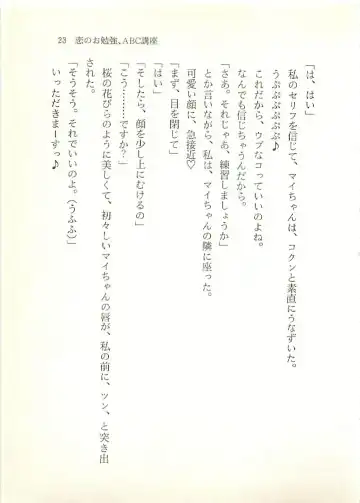 23 恋のお勉強、ABC講座
「は、はい」
私のセリフを信じて、マイちゃんは、コクンと素直にうなずいた。
うぷぷぷぷぷ♪
これだから、ウブなコっていいのよね。
なんでも信じちゃうんだから。
「さあ。それじゃあ、練習しましょうか」
とか言いながら、私は、マイちゃんの隣に座った。
可愛い顔に、急接近♡
「まず、目を閉じて」
「はい」
「そしたら、顔を少し上にむけるの」
「こう…………ですか?」
桜の花びらのように美しくて、初々しいマイちゃんの唇が、私の前に、ツン、と突き出
された。
「そうそう。それでいいのよ。(うふふ)」
いっただきまーすっ♪